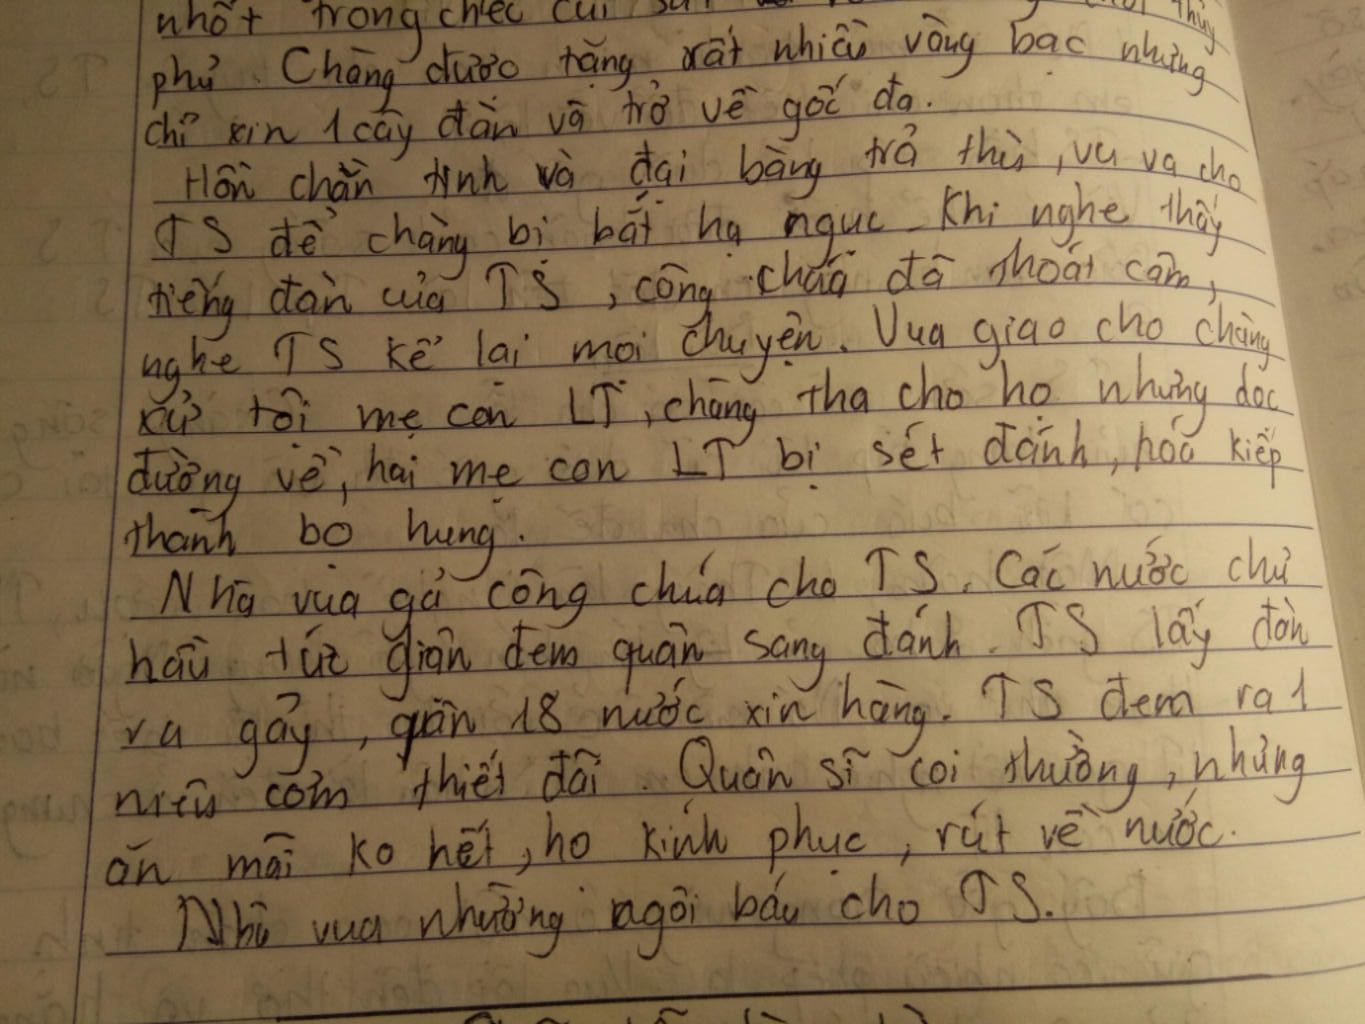 nhốt trong chiếc cũi sắt
phủ. Chàng được tặng rất nhiều vàng bạc nhưng
chỉ xin 1 cây đàn và trở về gốc đa.
Hồn chằn tinh và đại bàng trả thù, vu vạ cho
TS để chàng bị bắt hạ ngục. Khi nghe thấy
tiếng đàn của TS, công chúa đã thoát câm,
nghe TS kể lại mọi chuyện. Vua giao cho chàng
xử tội mẹ con LT, chàng tha cho họ nhưng dọc
đường về, hai mẹ con LT bị sét đánh, hóa kiếp
thành bọ hung.
Nhà vua gả công chúa cho TS. Các nước chư
hầu tức giận đem quân sang đánh. TS lấy đàn
ra gảy, quân 18 nước xin hàng. TS đem ra 1
niêu cơm thiết đãi. Quân sĩ coi thường, nhưng
ăn mãi ko hết, họ kính phục, rút về nước.
Nhà vua nhường ngôi báu cho TS.